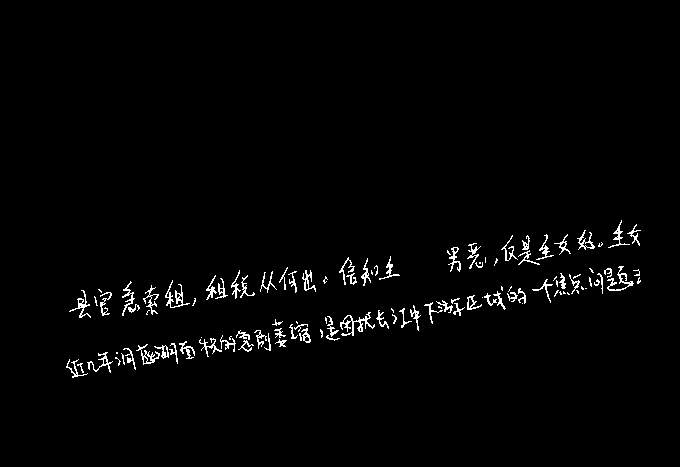 县官急索租，租税从何出。信知生 男恶，反是生女好。生女
近几年洞庭湖面积的急剧萎缩，是困扰长江中下游区域的一个焦点问题